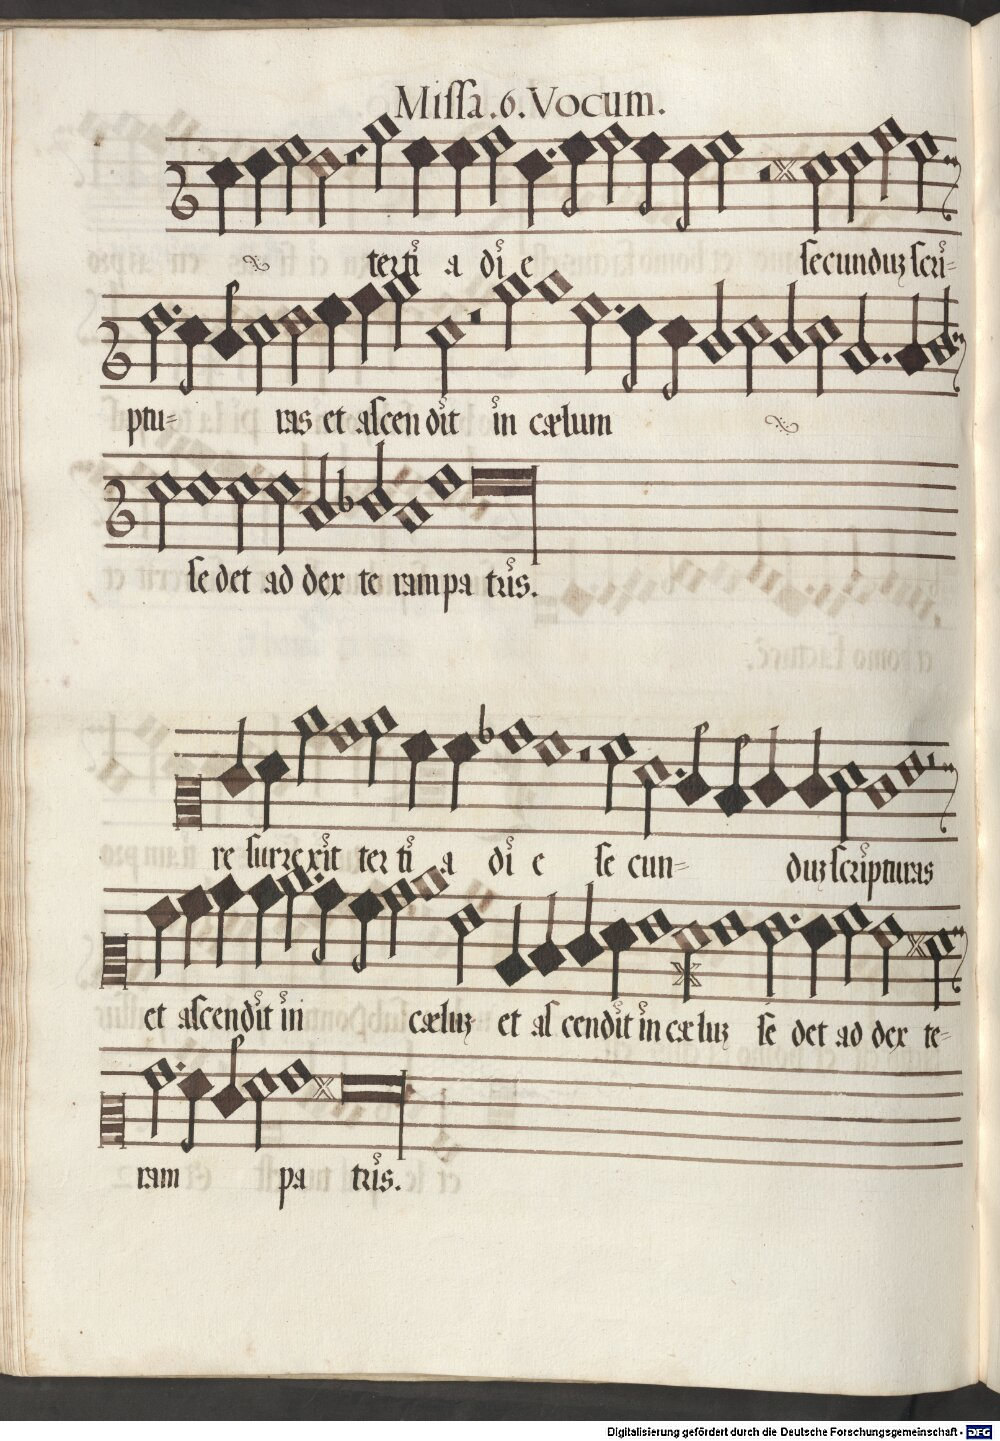 Missa.6.Vocum.
terti a di e secunduz scri-
ptu- ras et ascendit in cælum
sedet ad dex te ram pa tris.
re surrexit ter ti a di e se cun- duz scripturas
et ascendit in cæluz et as cendit in cæluz se det ad dex te-
ram pa tris.
Digitalisierung gefördert durch die Deutsche Forschungsgemeinschaft - DFG